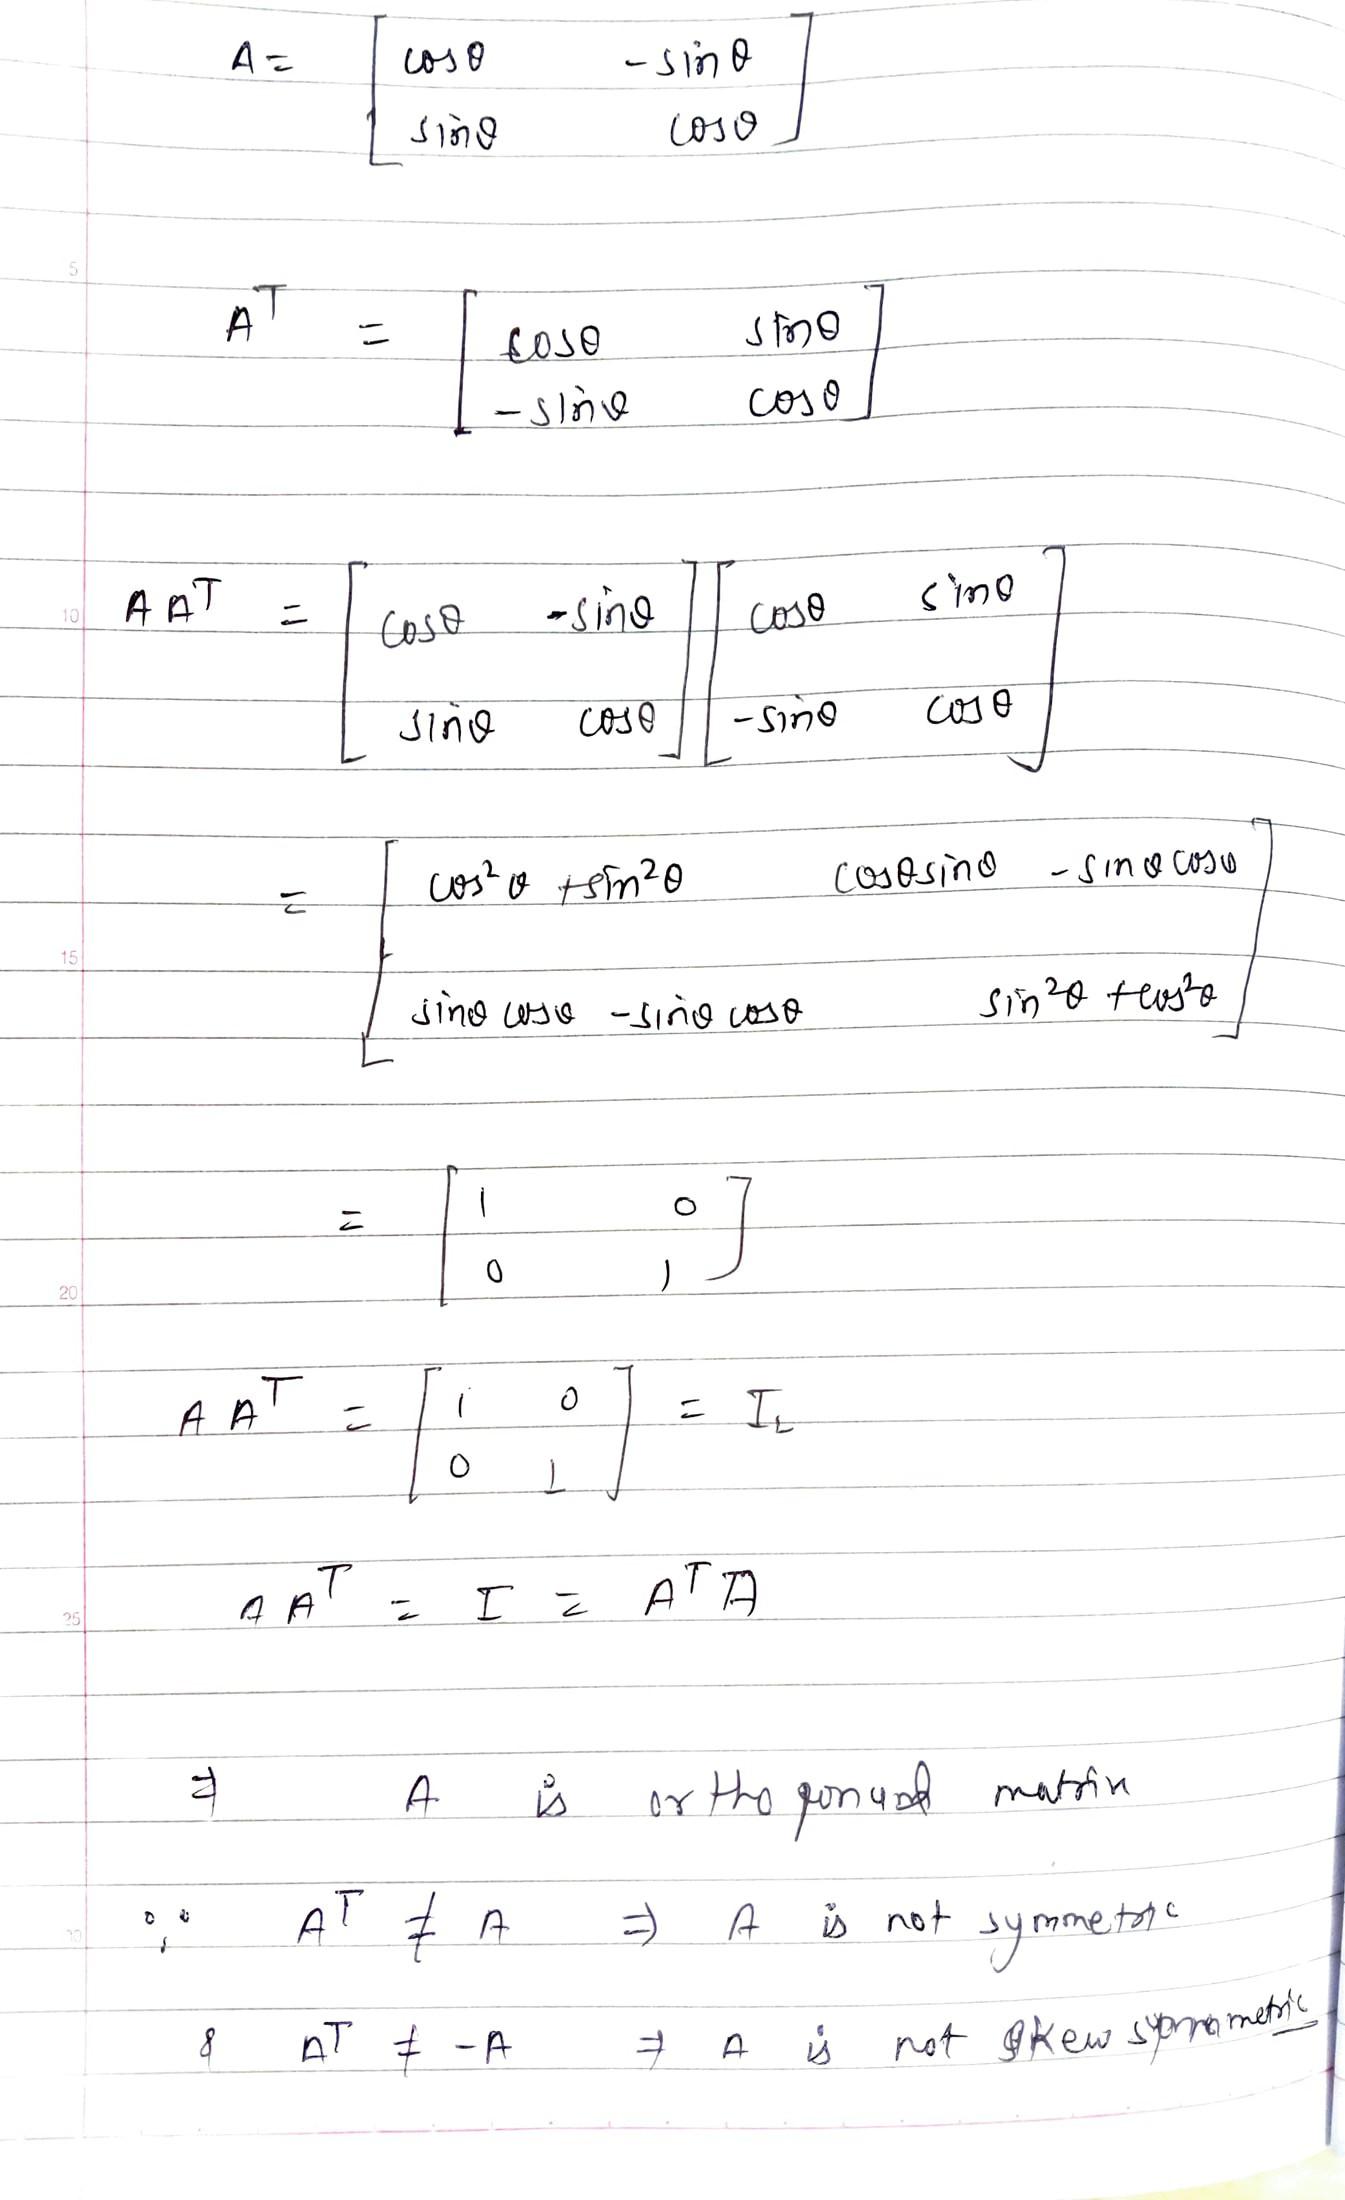 A = [ cosθ -sinθ
sinθ cosθ ]
5
A^T = [ cosθ sinθ
-sinθ cosθ ]
10 A A^T = [ cosθ -sinθ ] [ cosθ sinθ
sinθ cosθ ] [ -sinθ cosθ ]
= [ cos²θ +sin²θ cosθsinθ -sinθcosθ
15
sinθcosθ -sinθcosθ sin²θ +cos²θ ]
= [ 1 0
0 1 ]
20
A A^T = [ 1 0 ] = I₂
0 1
25 A A^T = I = A^T A
⇒ A is orthogonal matrix
∵ A^T ≠ A ⇒ A is not symmetric
30
& A^T ≠ -A ⇒ A is not skew symmetric